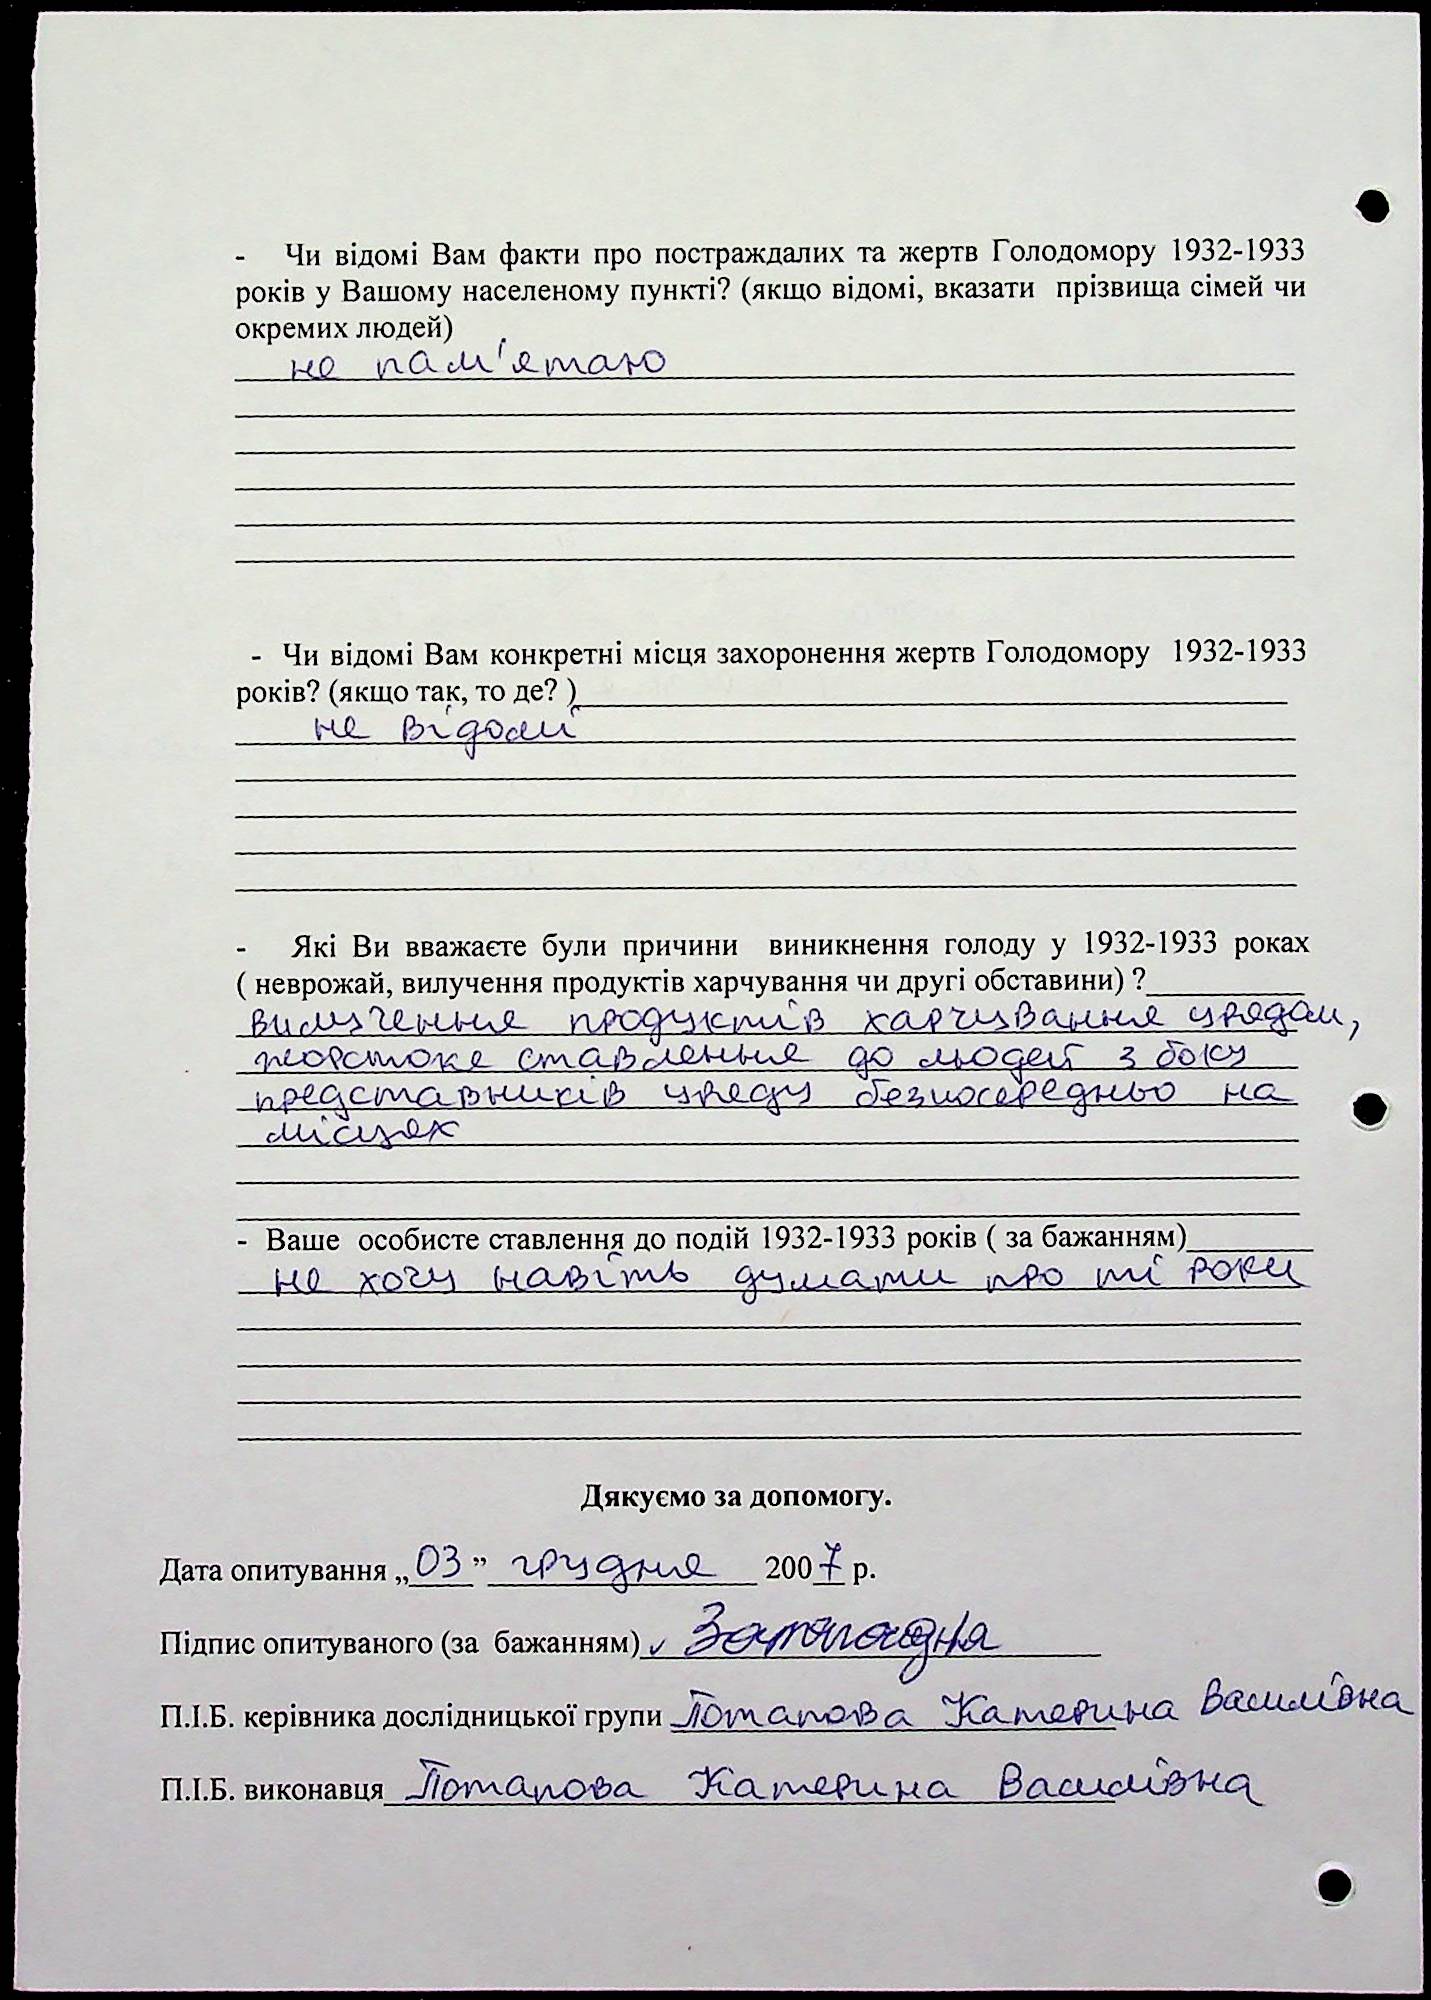 - Чи відомі Вам факти про постраждалих та жертв Голодомору 1932-1933
років у Вашому населеному пункті? (якщо відомі, вказати прізвища сімей чи
окремих людей)
не пам'ятаю
- Чи відомі Вам конкретні місця захоронення жертв Голодомору 1932-1933
років? (якщо так, то де? )
не відомі
- Які Ви вважаєте були причини виникнення голоду у 1932-1933 роках
( неврожай, вилучення продуктів харчування чи другі обставини) ?
вилучення продуктів харчування урядом,
жорстоке ставлення до людей з боку
представників уряду безпосередньо на
місцях
- Ваше особисте ставлення до подій 1932-1933 років ( за бажанням)
не хочу навіть думати про ті роки
Дякуємо за допомогу.
Дата опитування „03” грудня 2007 р.
Підпис опитуваного (за бажанням)
П.І.Б. керівника дослідницької групи Потапова Катерина Василівна
П.І.Б. виконавця Потапова Катерина Василівна